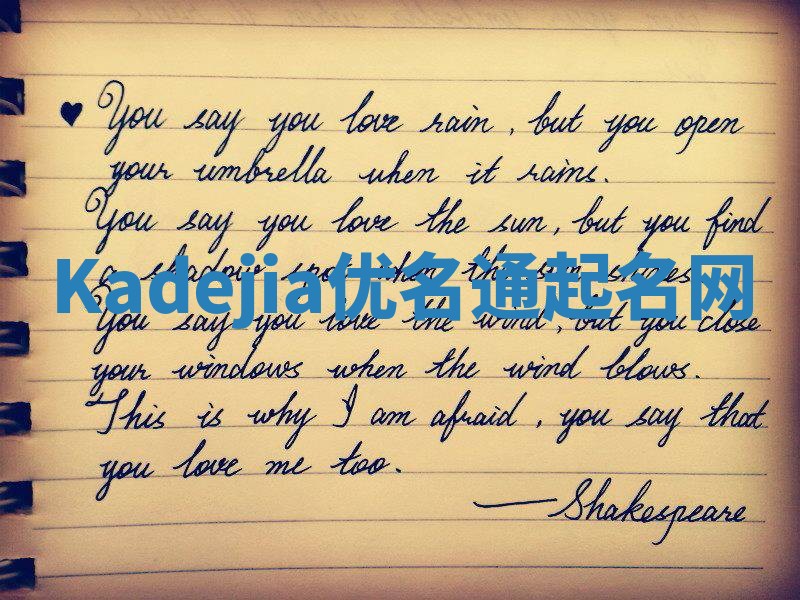 ♥ You say you love rain, but you open
your umbrella when it rains.
You say you love the sun, but you find
a shadow spot when the sun shines
Kadejia优名通起名网
You say you love the wind, but you close
your windows when the wind blows.
This is why I am afraid, you say that
you love me too.
— Shakespeare